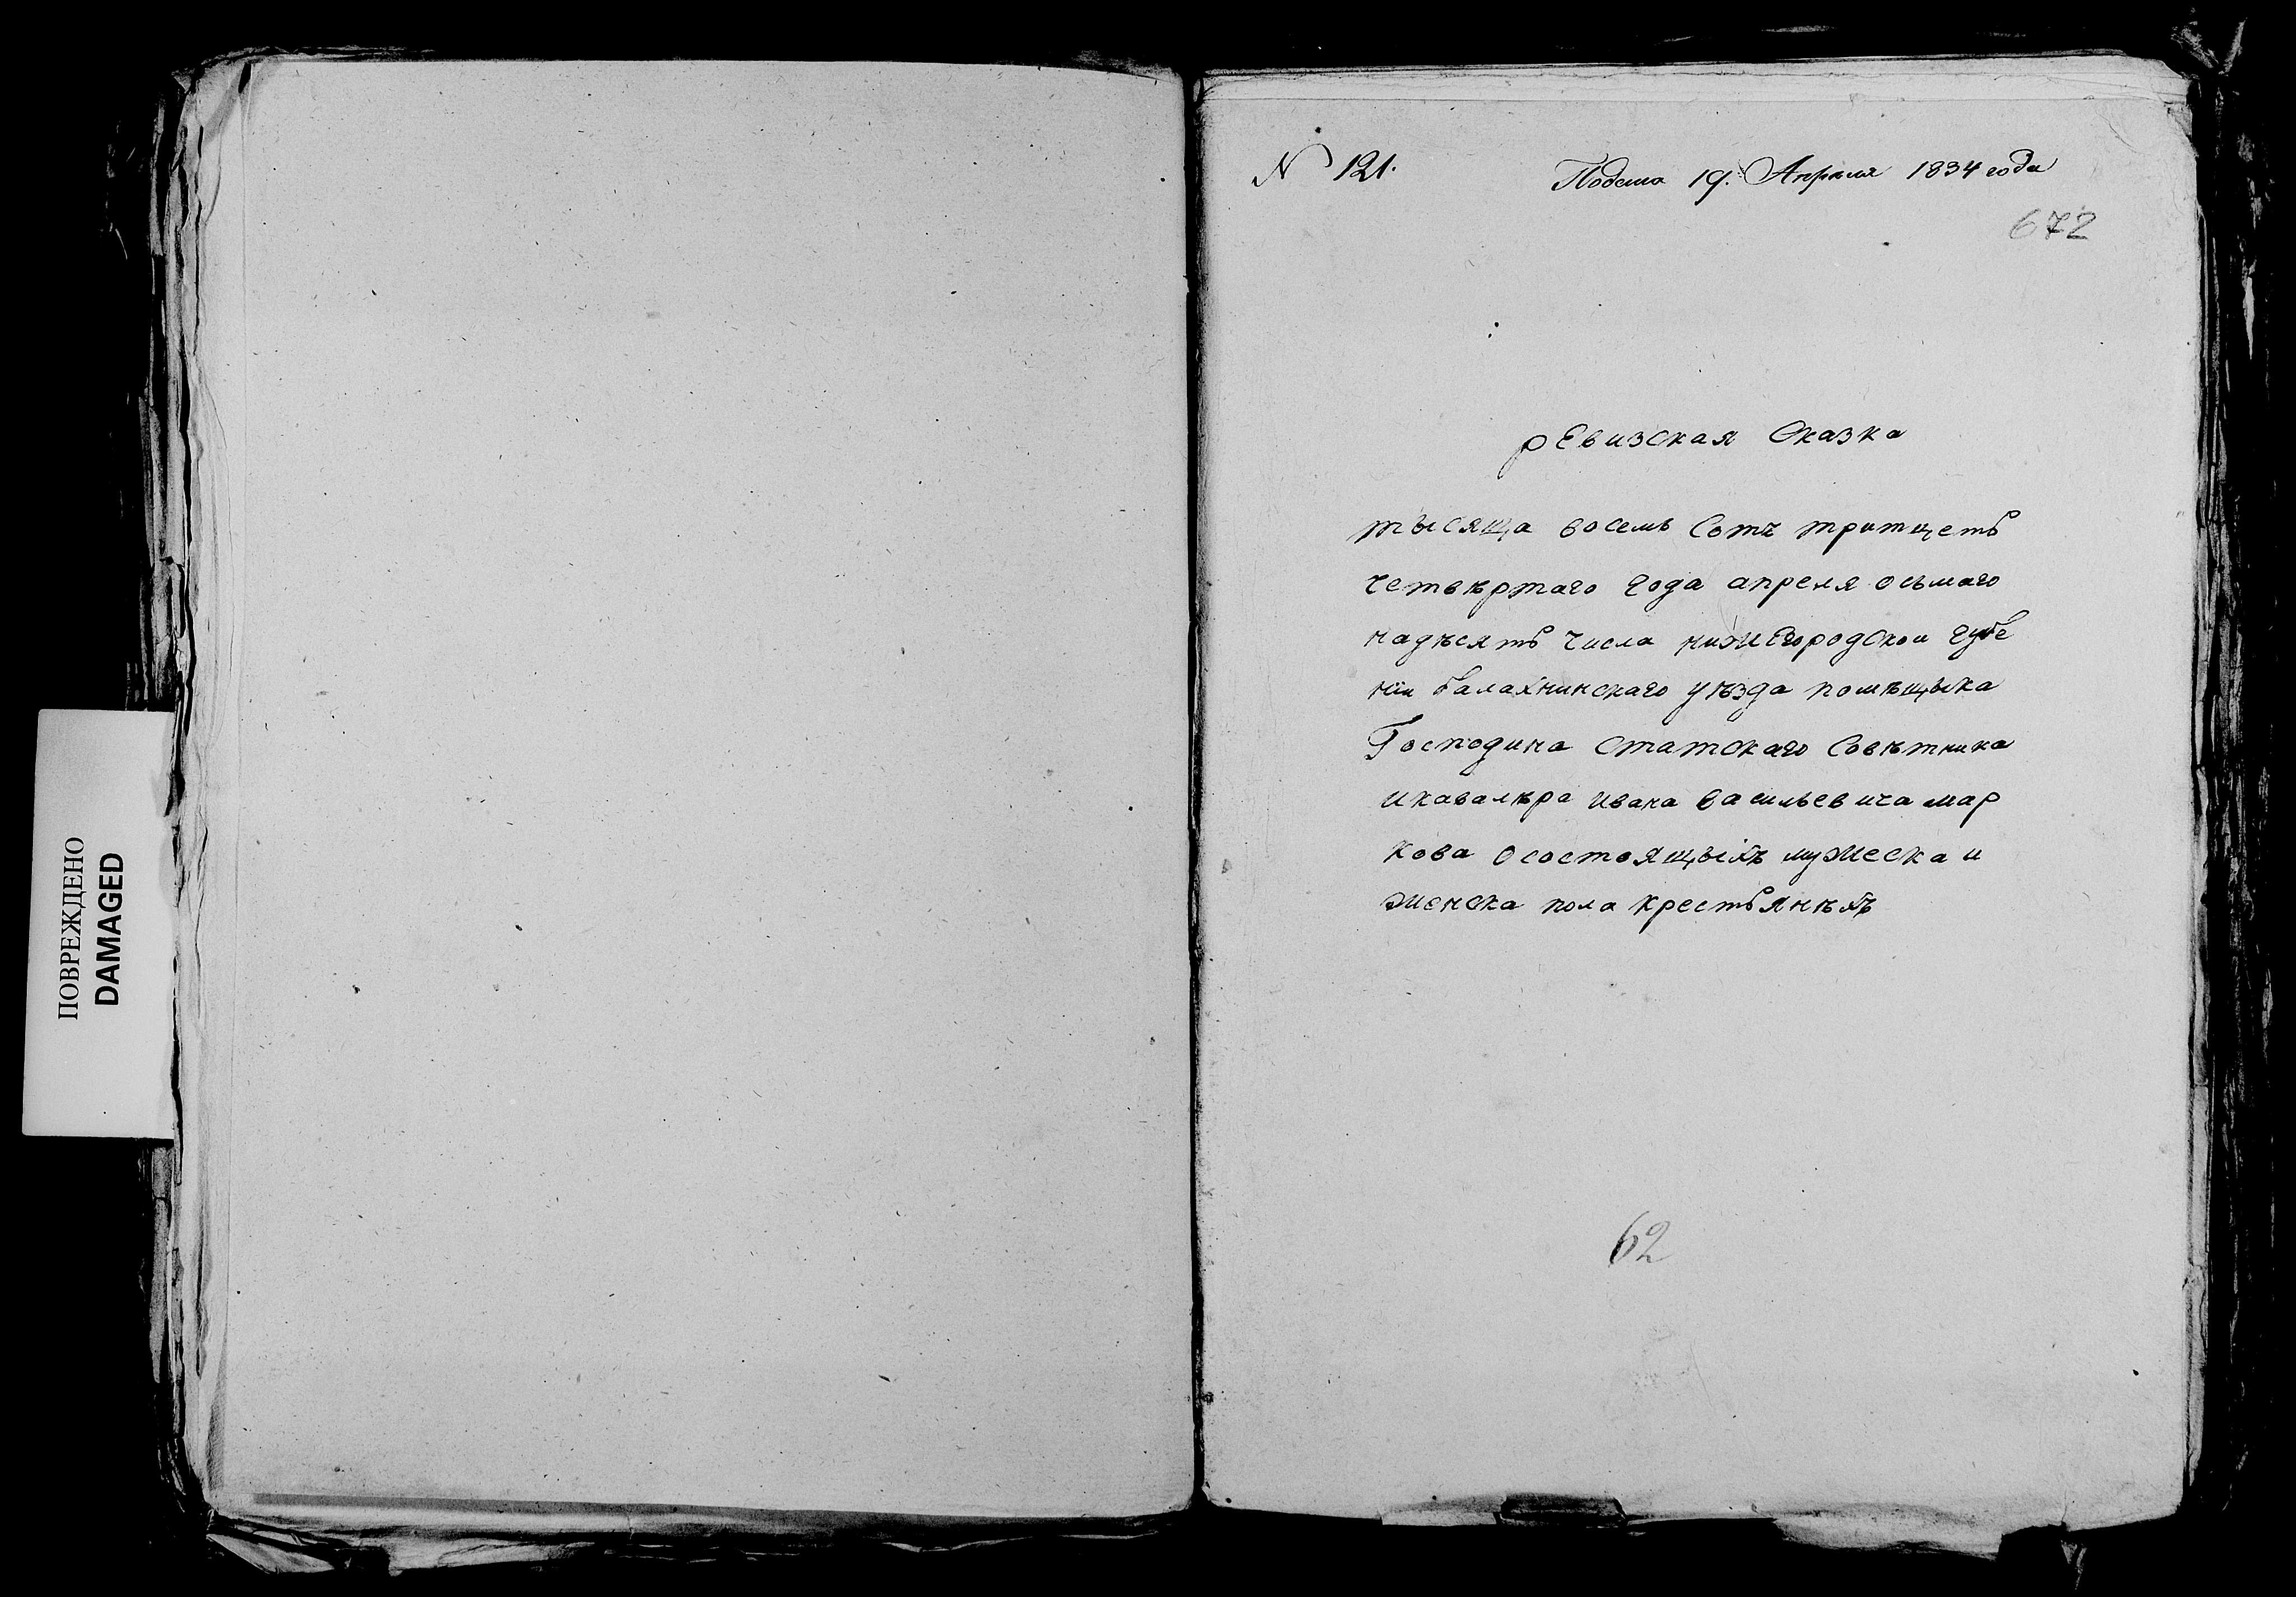 ПОВРЕЖДЕНО
DAMAGED
N 121.
Подана 19. Апреля 1834 года
672
ревизская Сказка
тысяща восемь Сотъ тритцеть
четвѣртаго года апреля осьмаго
надѣсять числа нижегородской губе
нїи балахнинскаго уѣзда помѣщыка
Господина Статскаго Совѣтника
икавалѣра ивана васильевича мар
кова осостоящыхъ мужеска и
женска пола крестьянѣхъ
62